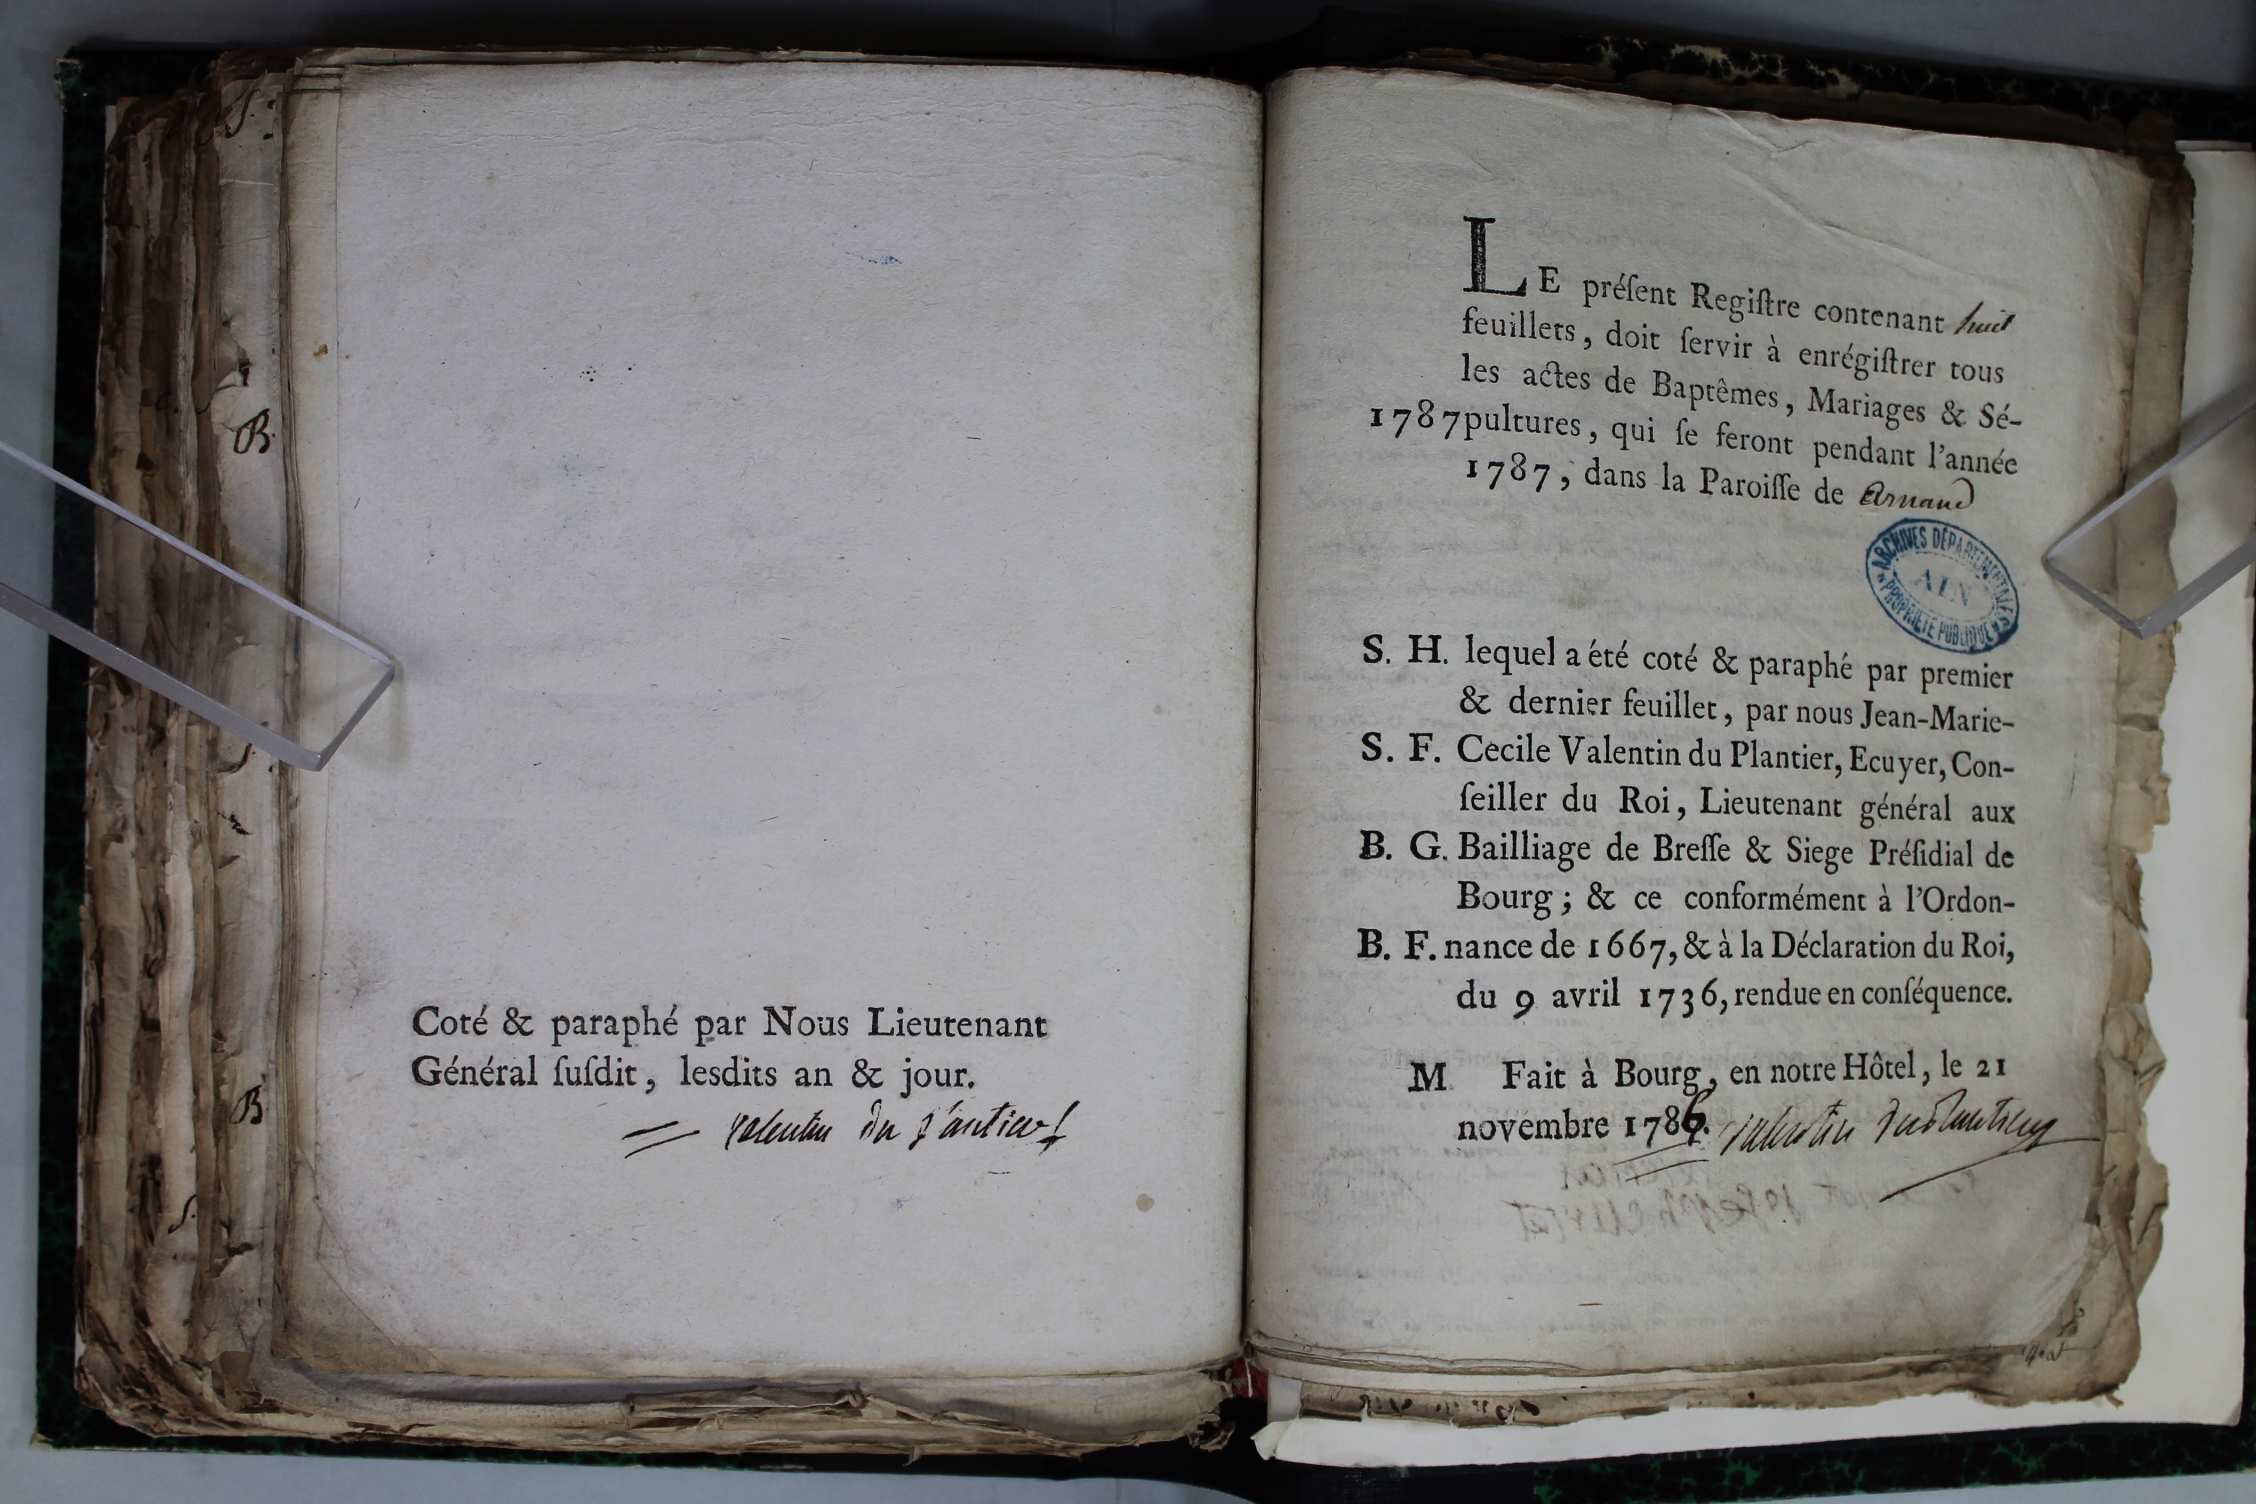 Coté & paraphé par Nous Lieutenant
Général ſuſdit, lesdits an & jour.
valentin du plantier
LE préſent Regiſtre contenant huit
feuillets, doit ſervir à enrégiſtrer tous
les actes de Baptêmes, Mariages & Sé-
1787 pultures, qui ſe feront pendant l'année
1787, dans la Paroiſſe de Arnand
ARCHIVES DÉPARTEMENTALES
AIN
PROPRIÉTÉ PUBLIQUE
S. H. lequel a été coté & paraphé par premier
& dernier feuillet, par nous Jean-Marie-
S. F. Cecile Valentin du Plantier, Ecuyer, Con-
ſeiller du Roi, Lieutenant général aux
B. G. Bailliage de Breſſe & Siege Préſidial de
Bourg; & ce conformément à l'Ordon-
B. F. nance de 1667, & à la Déclaration du Roi,
du 9 avril 1736, rendue en conſéquence.
M Fait à Bourg, en notre Hôtel, le 21
novembre 1786. valentin duplantier
B
B